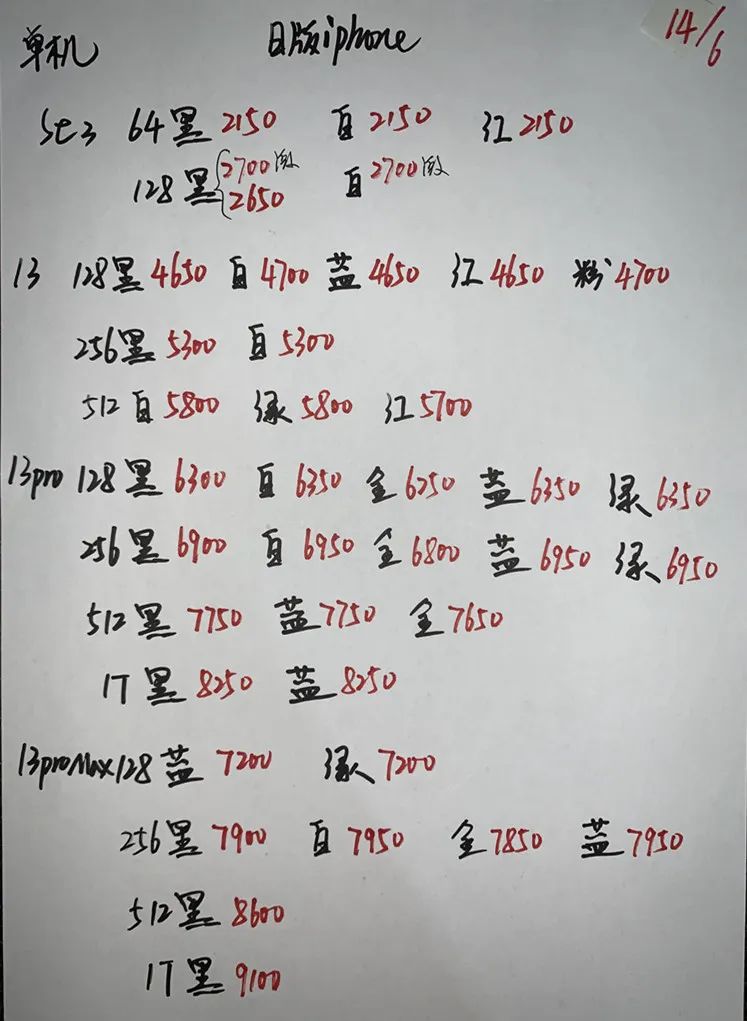 单机 日版iphone 14/6
SE3 64黑2150 白2150 江2150
128黑2700激 白2700激
2650
13 128黑4650 白4700 蓝4650 江4650 粉4700
256黑5300 白5300
512白5800 绿5800 江5700
13pro 128黑6300 白6350 金6250 蓝6350 绿6350
256黑6900 白6950 金6800 蓝6950 绿6950
512黑7750 蓝7750 金7650
1T黑8250 蓝8250
13proMax128蓝7200 绿7200
256黑7900 白7950 金7850 蓝7950
512黑8600
1T黑9100